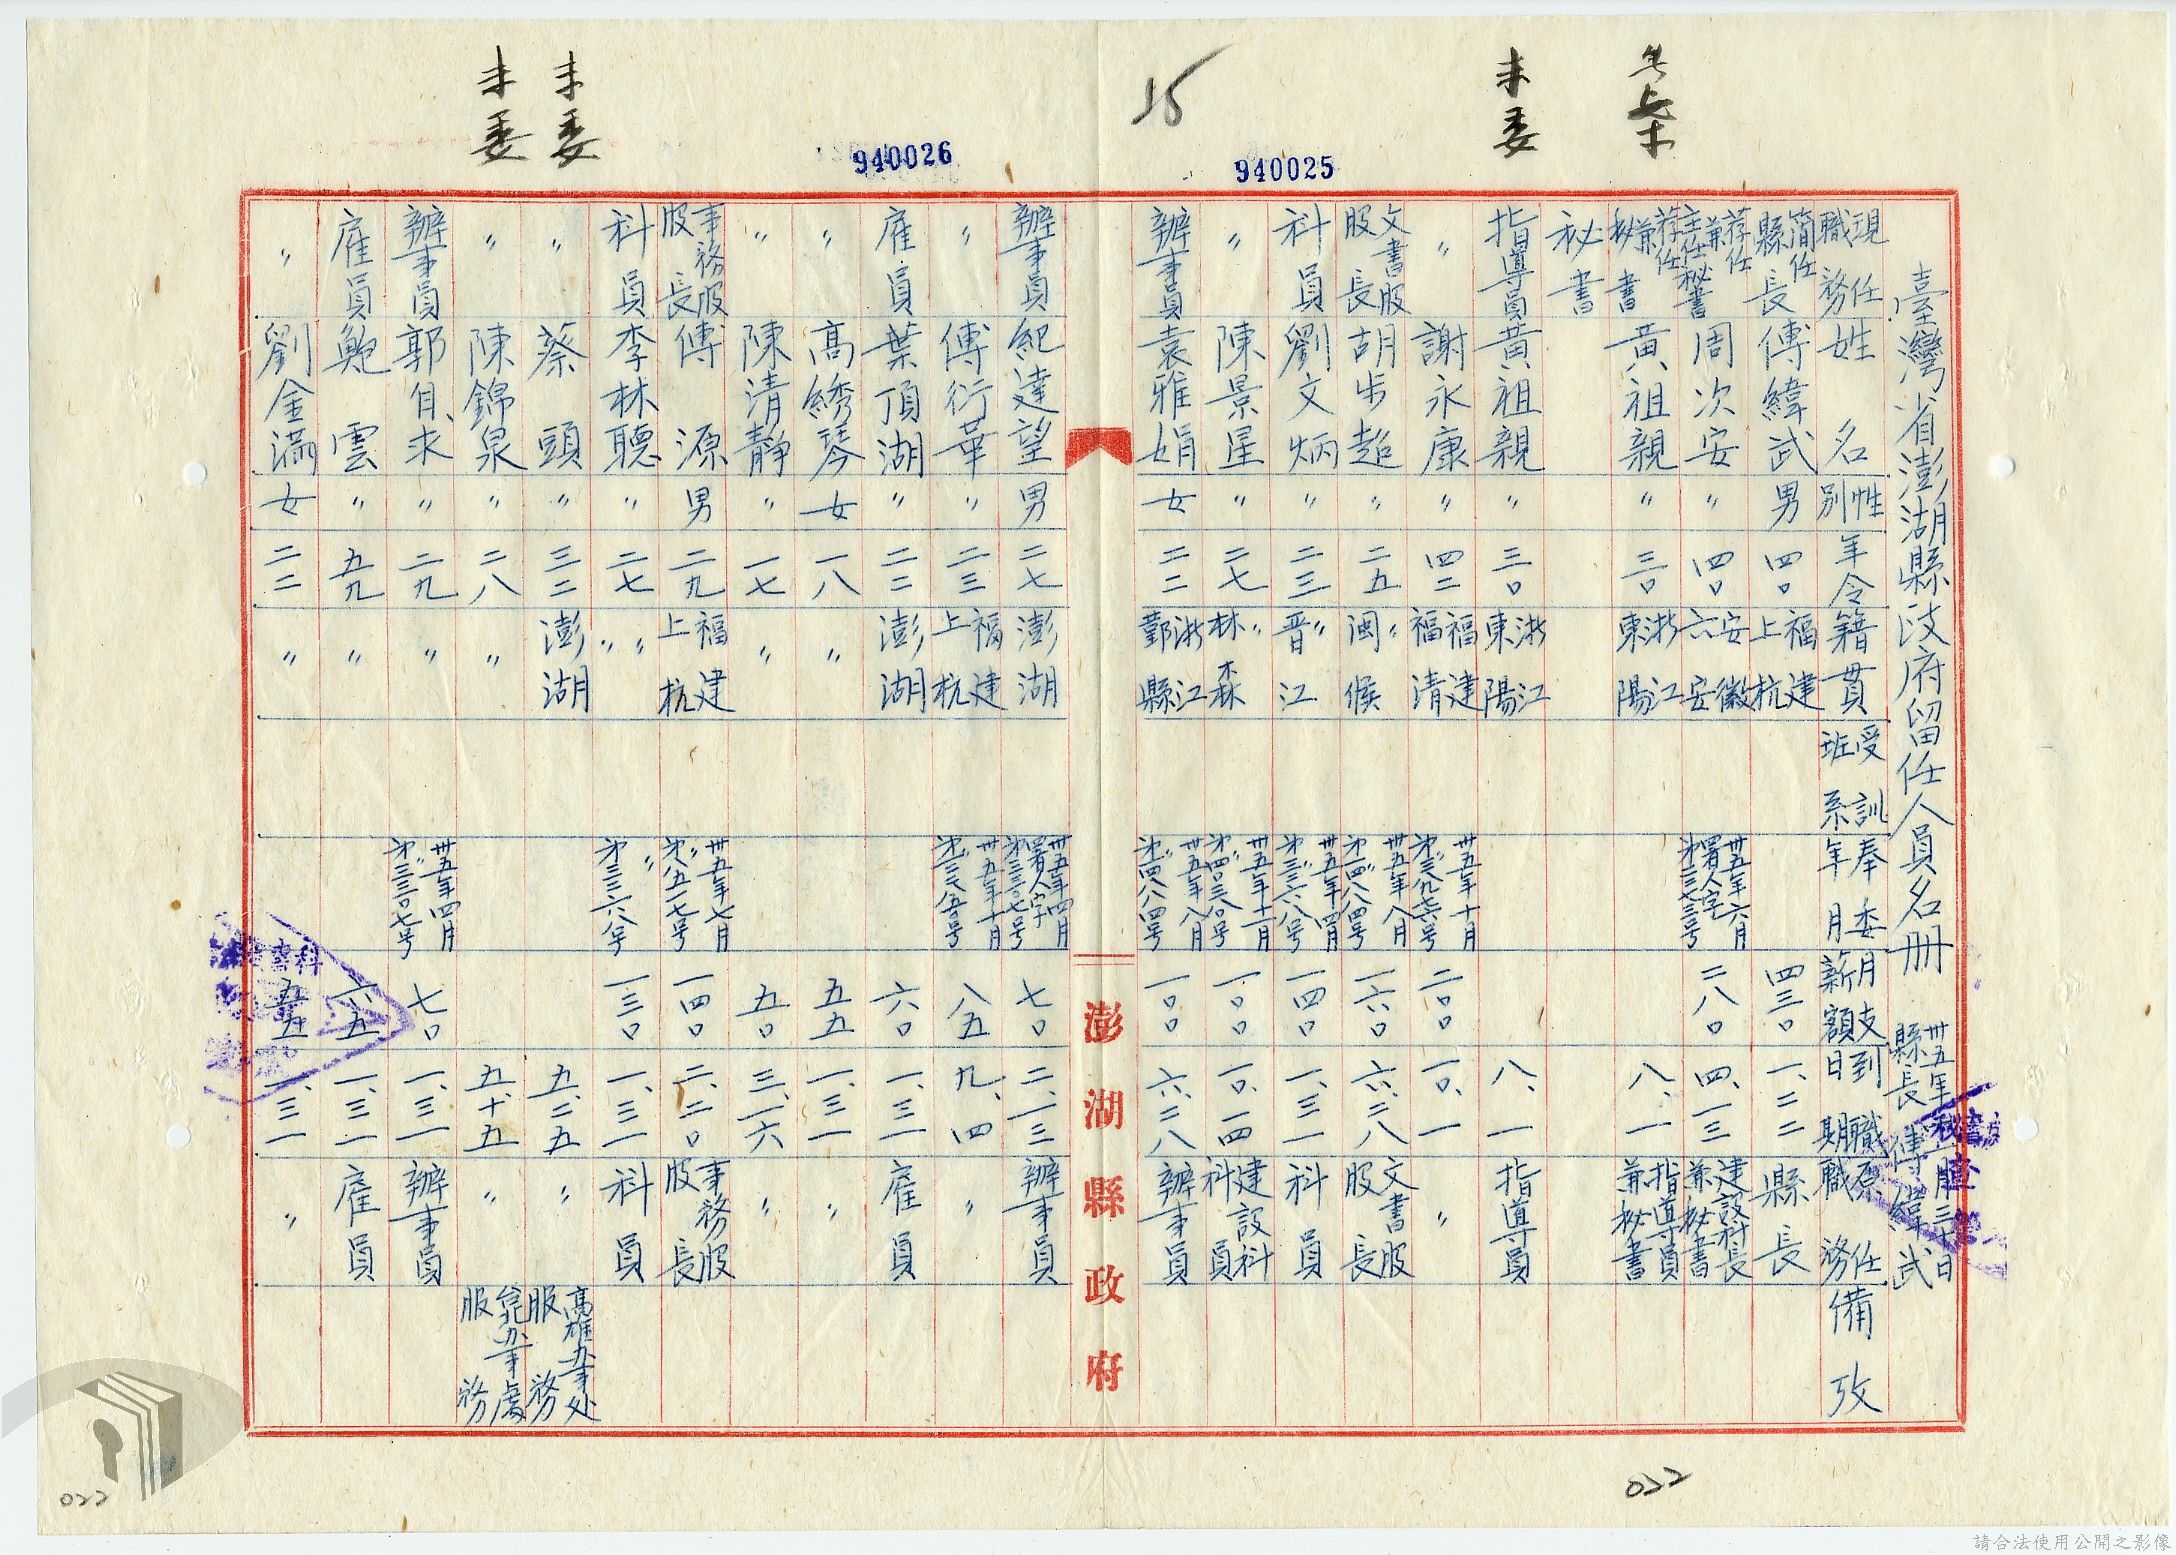 臺灣省澎湖縣政府留任人員名册
卅五年
三十日
縣長 傅緯武
現任職務 姓名 性別 年令 籍貫 受訓班系 奉委年月 月支薪額 到職日期 原任職務 備攷
簡任縣長 傅緯武 男 四〇 福建上杭 四三〇 一、二二 縣長
荐任兼主任秘書 周次安 〃 四〇 安徽六安 卅五年六月署人字第三七三号 二八〇 四、一三 建設科長兼秘書
荐任兼秘書 黃祖親 〃 三〇 浙江東陽 八、一 指導員兼秘書
秘書
指導員 黃祖親 〃 三〇 浙江東陽 八、一 指導員
〃 謝永康 〃 四二 福建福清 卅五年十月 二〇〇 一〇、一 〃
文書股股長 胡步超 〃 二五 〃閩侯 卅五年八月 第一四八八四号 一六〇 六、二八 文書股股長
科員 劉文炳 〃 二三 〃晋江 卅五年四月 第三三六八号 一四〇 一、三一 科員
〃 陳景星 〃 二七 〃林森 卅五年十一月 一〇〇 一〇、一四 建設科科員
辦事員 袁雅娟 女 二二 浙江鄞縣 卅五年八月 第一四八八四号 一〇〇 六、二八 辦事員
澎湖縣政府
辦事員 紀達望 男 二七 澎湖 卅五年四月署人字第三三〇七号 七〇 二、一三 辦事員
〃 傅衍華 〃 二三 福建上杭 卅五年十月 八五 九、四
雇員 葉頂湖 〃 二二 澎湖 六〇 一、三一 雇員
〃 高綉琴 女 一八 〃 五五 一、三一 〃
〃 陳清靜 〃 一七 〃 五〇 三、一六 〃
事務股股長 傅源 男 二九 福建上杭 卅五年七月 第八五一七号 一四〇 二、二〇 事務股股長
科員 李林聰 〃 二七 〃〃 〃第三三六八号 一三〇 一、三一 科員
〃 蔡頭 〃 三二 澎湖 五、二五 〃 高雄办事处服務
〃 陳錦泉 〃 二八 〃 五、十五 〃 台北办事處服務
辦事員 郭自求 〃 二九 〃 卅五年四月 第三三〇七号 七〇 一、三一 辦事員
雇員 鮑雲 〃 五九 〃 六五 一、三一 雇員
〃 劉金滿 女 二二 〃 五五 一、三一 〃
未委
未委
未委
15
940025
940026
022
022
請合法使用公開之影像